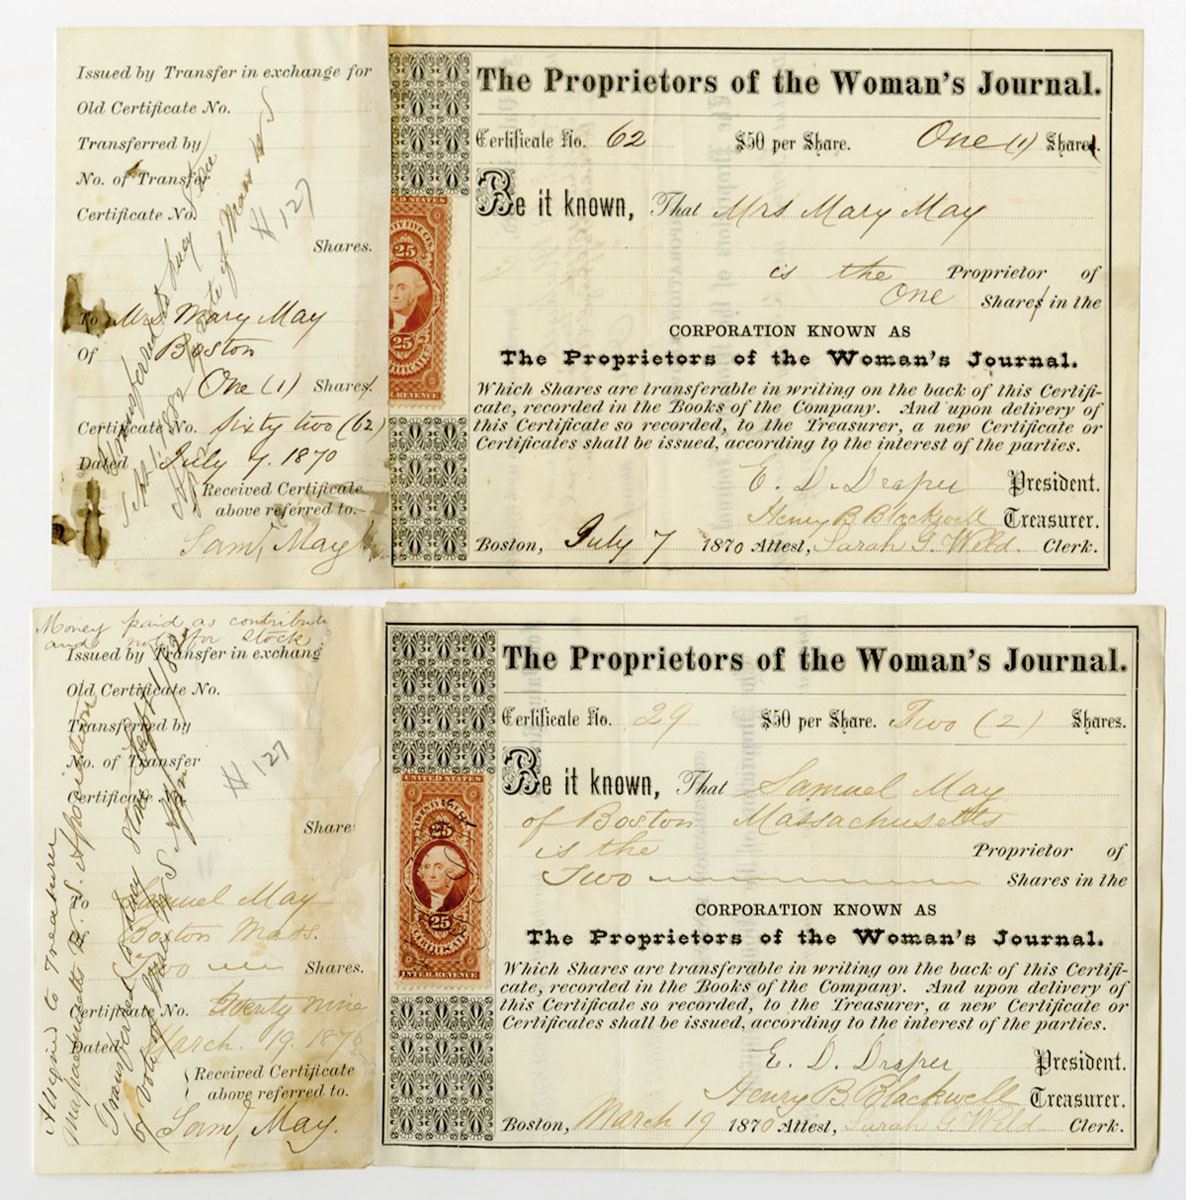 Issued by Transfer in exchange for
Old Certificate No.
Transferred by
No. of Transfer
Certificate No.
# 127
Shares.
To Mrs Mary May
Of Boston
One (1) Shares.
Certificate No. Sixty two (62)
Dated July 7. 1870
Received Certificate
above referred to.
Saml, May
Transferred to Lucy Stone
Sept 1. 1882
by vote of Mass W S
25
25
The Proprietors of the Woman's Journal.
Certificate No. 62 $50 per Share. One (1) Shares.
Be it known, That Mrs Mary May
is the Proprietor of
One Shares in the
CORPORATION KNOWN AS
The Proprietors of the Woman's Journal.
Which Shares are transferable in writing on the back of this Certifi-
cate, recorded in the Books of the Company. And upon delivery of
this Certificate so recorded, to the Treasurer, a new Certificate or
Certificates shall be issued, according to the interest of the parties.
E. D. Draper President.
Henry B Blackwell Treasurer.
Boston, July 7 1870 Attest, Sarah G. Weld. Clerk.
Money paid as contribute
and not for stock.
Issued by Transfer in exchang
Old Certificate No.
Transferred by
No. of Transfer
Certificate No
# 127
Share
To Samuel May
Of Boston Mass.
Two Shares.
Certificate No. Twenty Nine
Dated March. 19. 1870
Received Certificate
above referred to.
Saml, May.
Assigned to Treasurer
Massachusetts W. S. Association
Transferred to Lucy Stone Sept 1 1882
by vote of Mass W S
UNITED STATES
25
25
CERTIFICATE
INTER. REVENUE
The Proprietors of the Woman's Journal.
Certificate No. 29 $50 per Share. Two (2) Shares.
Be it known, That Samuel May
of Boston Massachusetts
is the Proprietor of
Two Shares in the
CORPORATION KNOWN AS
The Proprietors of the Woman's Journal.
Which Shares are transferable in writing on the back of this Certifi-
cate, recorded in the Books of the Company. And upon delivery of
this Certificate so recorded, to the Treasurer, a new Certificate or
Certificates shall be issued, according to the interest of the parties.
E. D. Draper President.
Henry B. Blackwell Treasurer.
Boston, March 19 1870 Attest, Sarah G Weld Clerk.